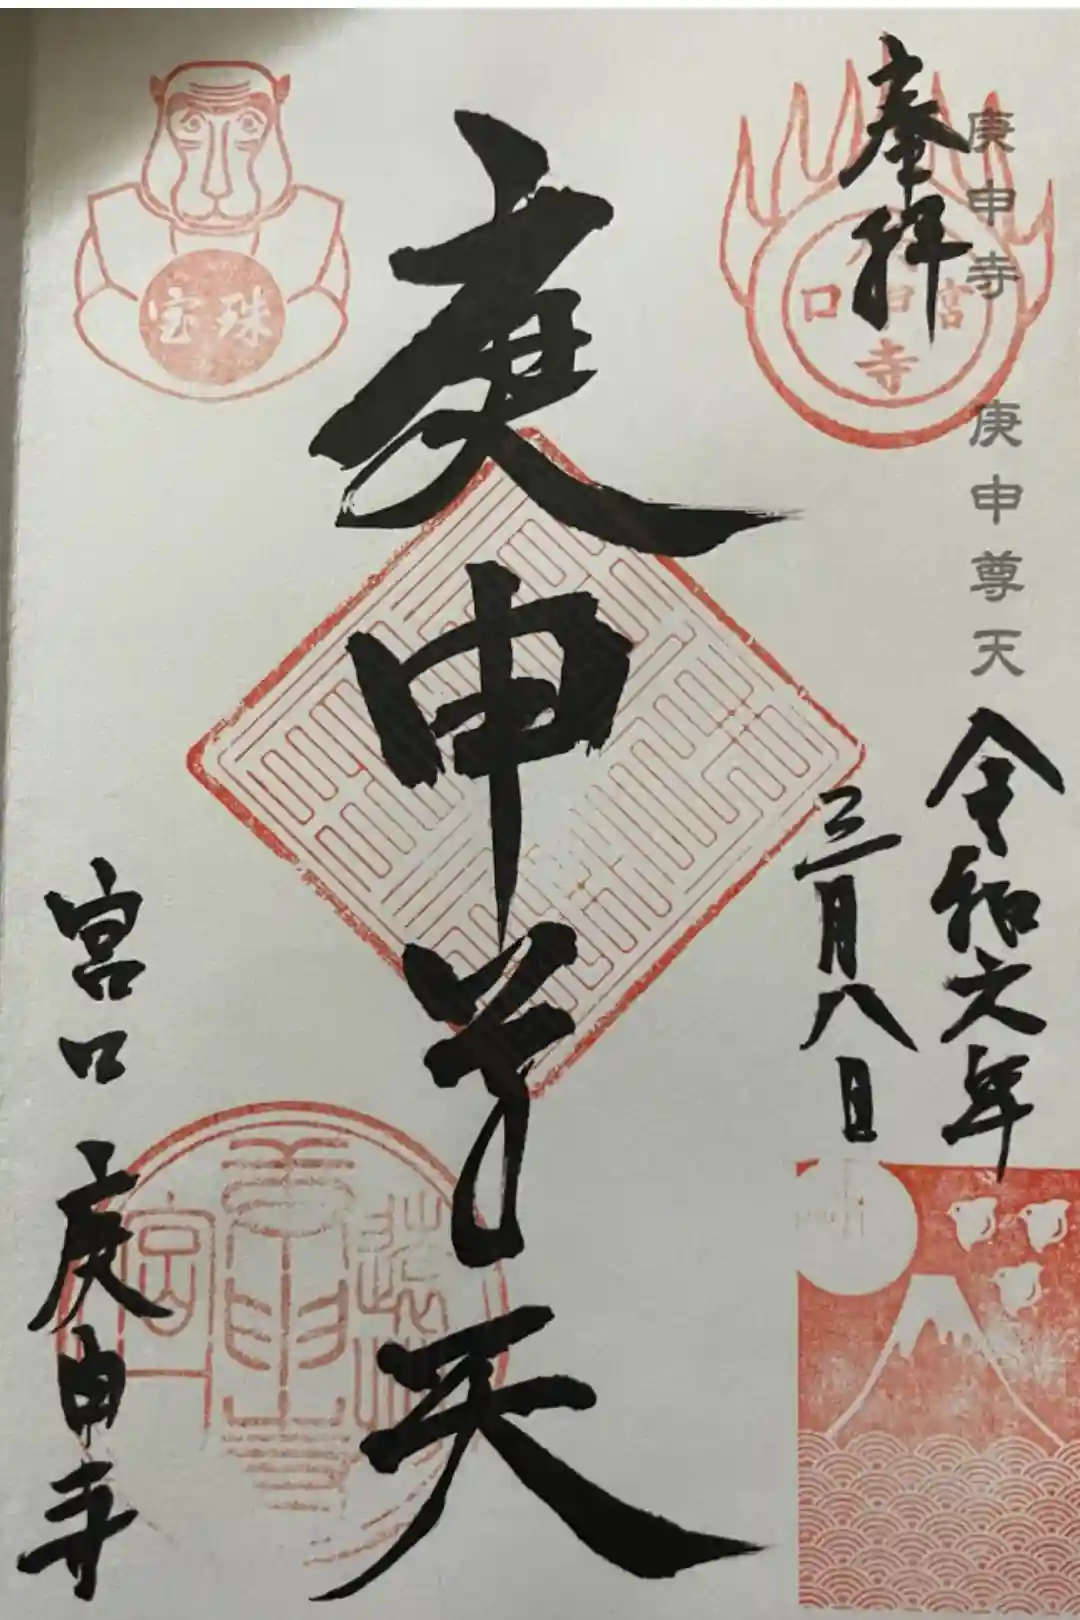 庚申寺 庚申尊天
奉拝
令和六年
三月八日
庚申尊天
宮口 庚申寺
宝珠
宮口
寺